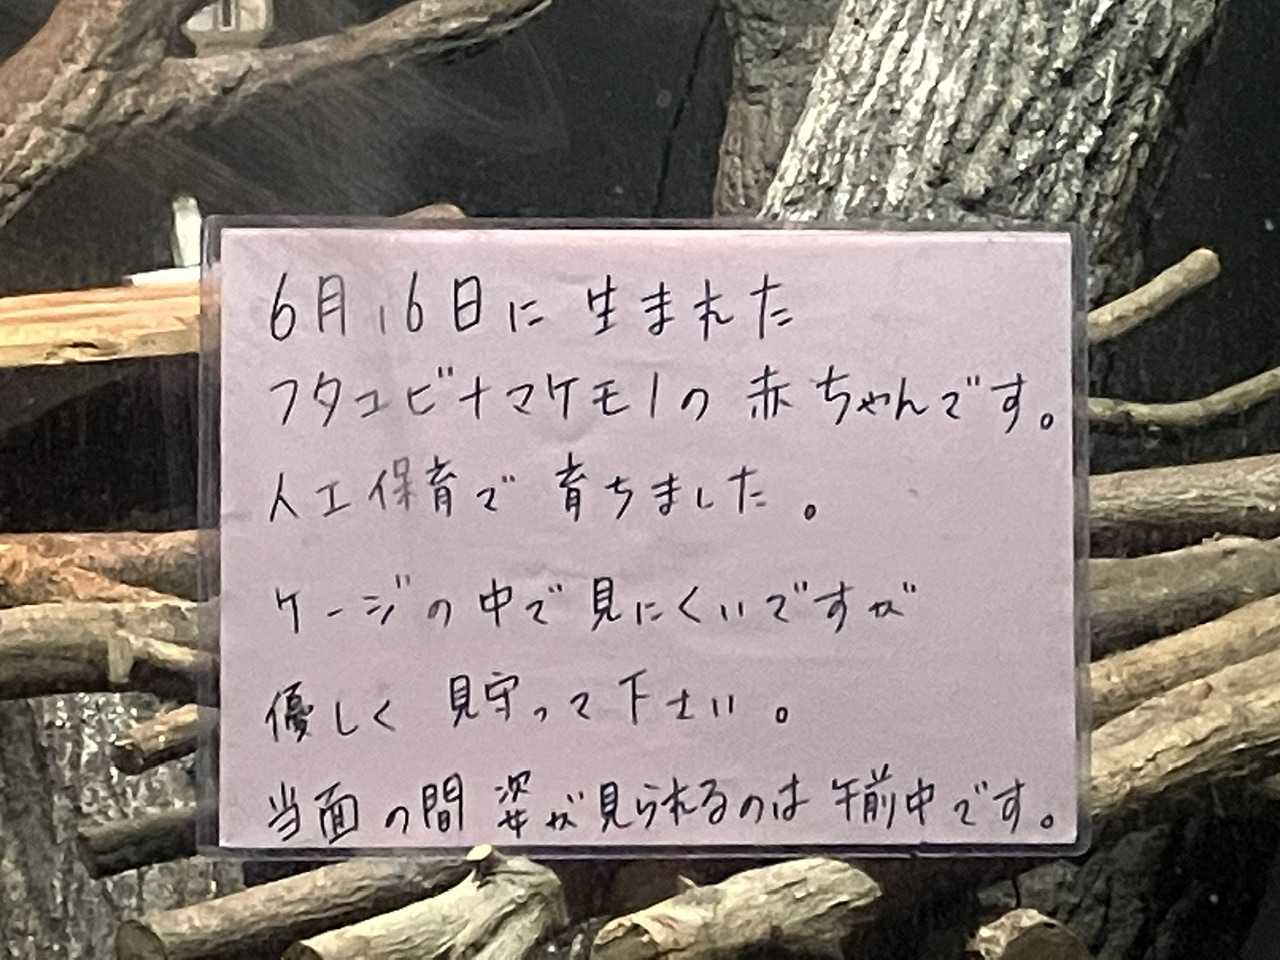 6月16日に 生まれた
フタユビナマケモノの 赤ちゃんです。
人工保育で 育ちました。
ケージの中で見にくいですが
優しく 見守って下さい。
当面の間 姿が見られるのは 午前中です。